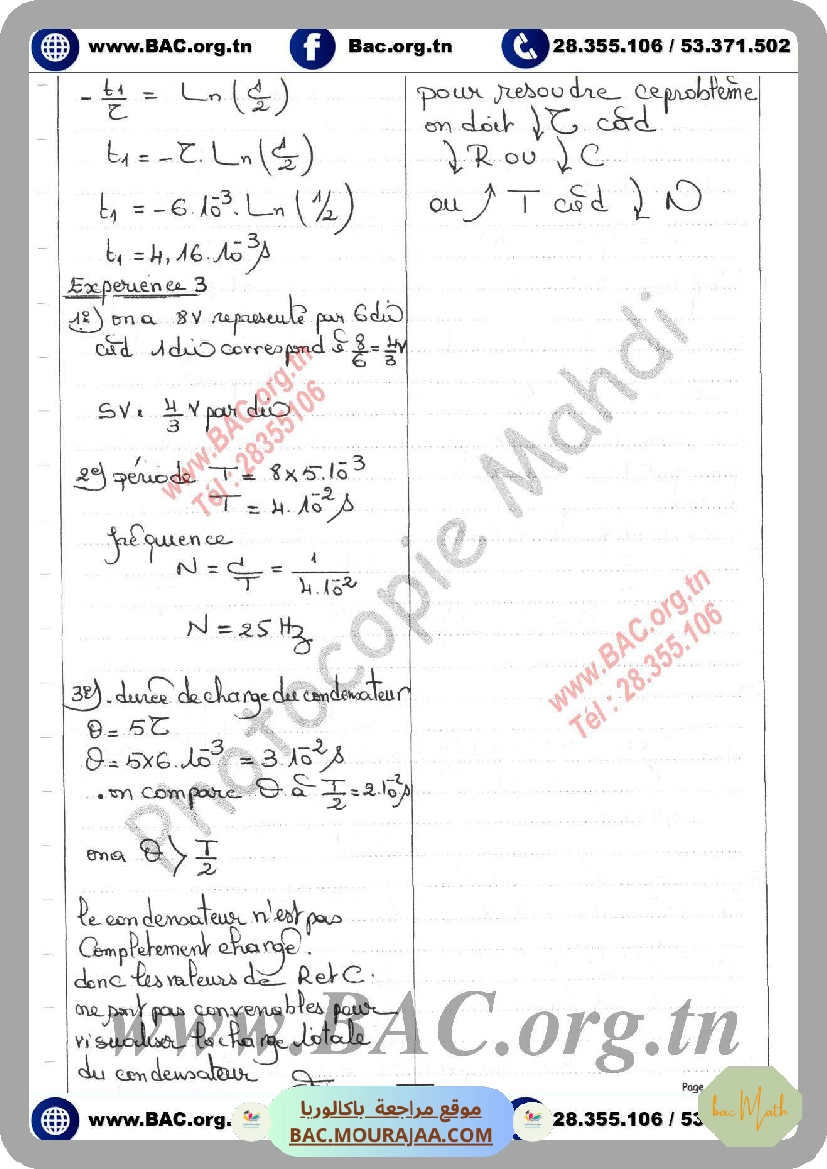 www.BAC.org.tn
Bac.org.tn
28.355.106 / 53.371.502
- t1/τ = Ln(1/2)
t1 = - τ. Ln(1/2)
t1 = -6.10⁻³. Ln(1/2)
t1 = 4,16.10⁻³s
Experience 3
1°) on a 8V representé par 6 div
càd 1 div correspond à 8/6 = 4/3 V
SV: 4/3 V par div
2°) période T = 8x5.10⁻³
T = 4.10⁻²s
fréquence
N = 1/T = 1/4.10⁻²
N = 25 Hz
3°). durée de charge du condensateur
θ = 5τ
θ = 5x6.10⁻³ = 3.10⁻²s
. on compare θ à T/2 = 2.10⁻²s
ona θ > T/2
le condensateur n'est pas
Completement chargé.
donc les valeurs de R et C.
ne sont pas convenables pour
visualiser la charge totale
du condensateur
pour resoudre ce problème
on doit ↓ τ càd
↓ R ou ↓ C
ou ↑ T càd ↓ N
www.BAC.org.tn
Tél : 28355106
Photocopie Mahdi
www.BAC.org.tn
Tél : 28.355.106
www.BAC.org.tn
Page
bac Math
www.BAC.org.
موقع مراجعة باكالوريا
BAC.MOURAJAA.COM
28.355.106 / 53